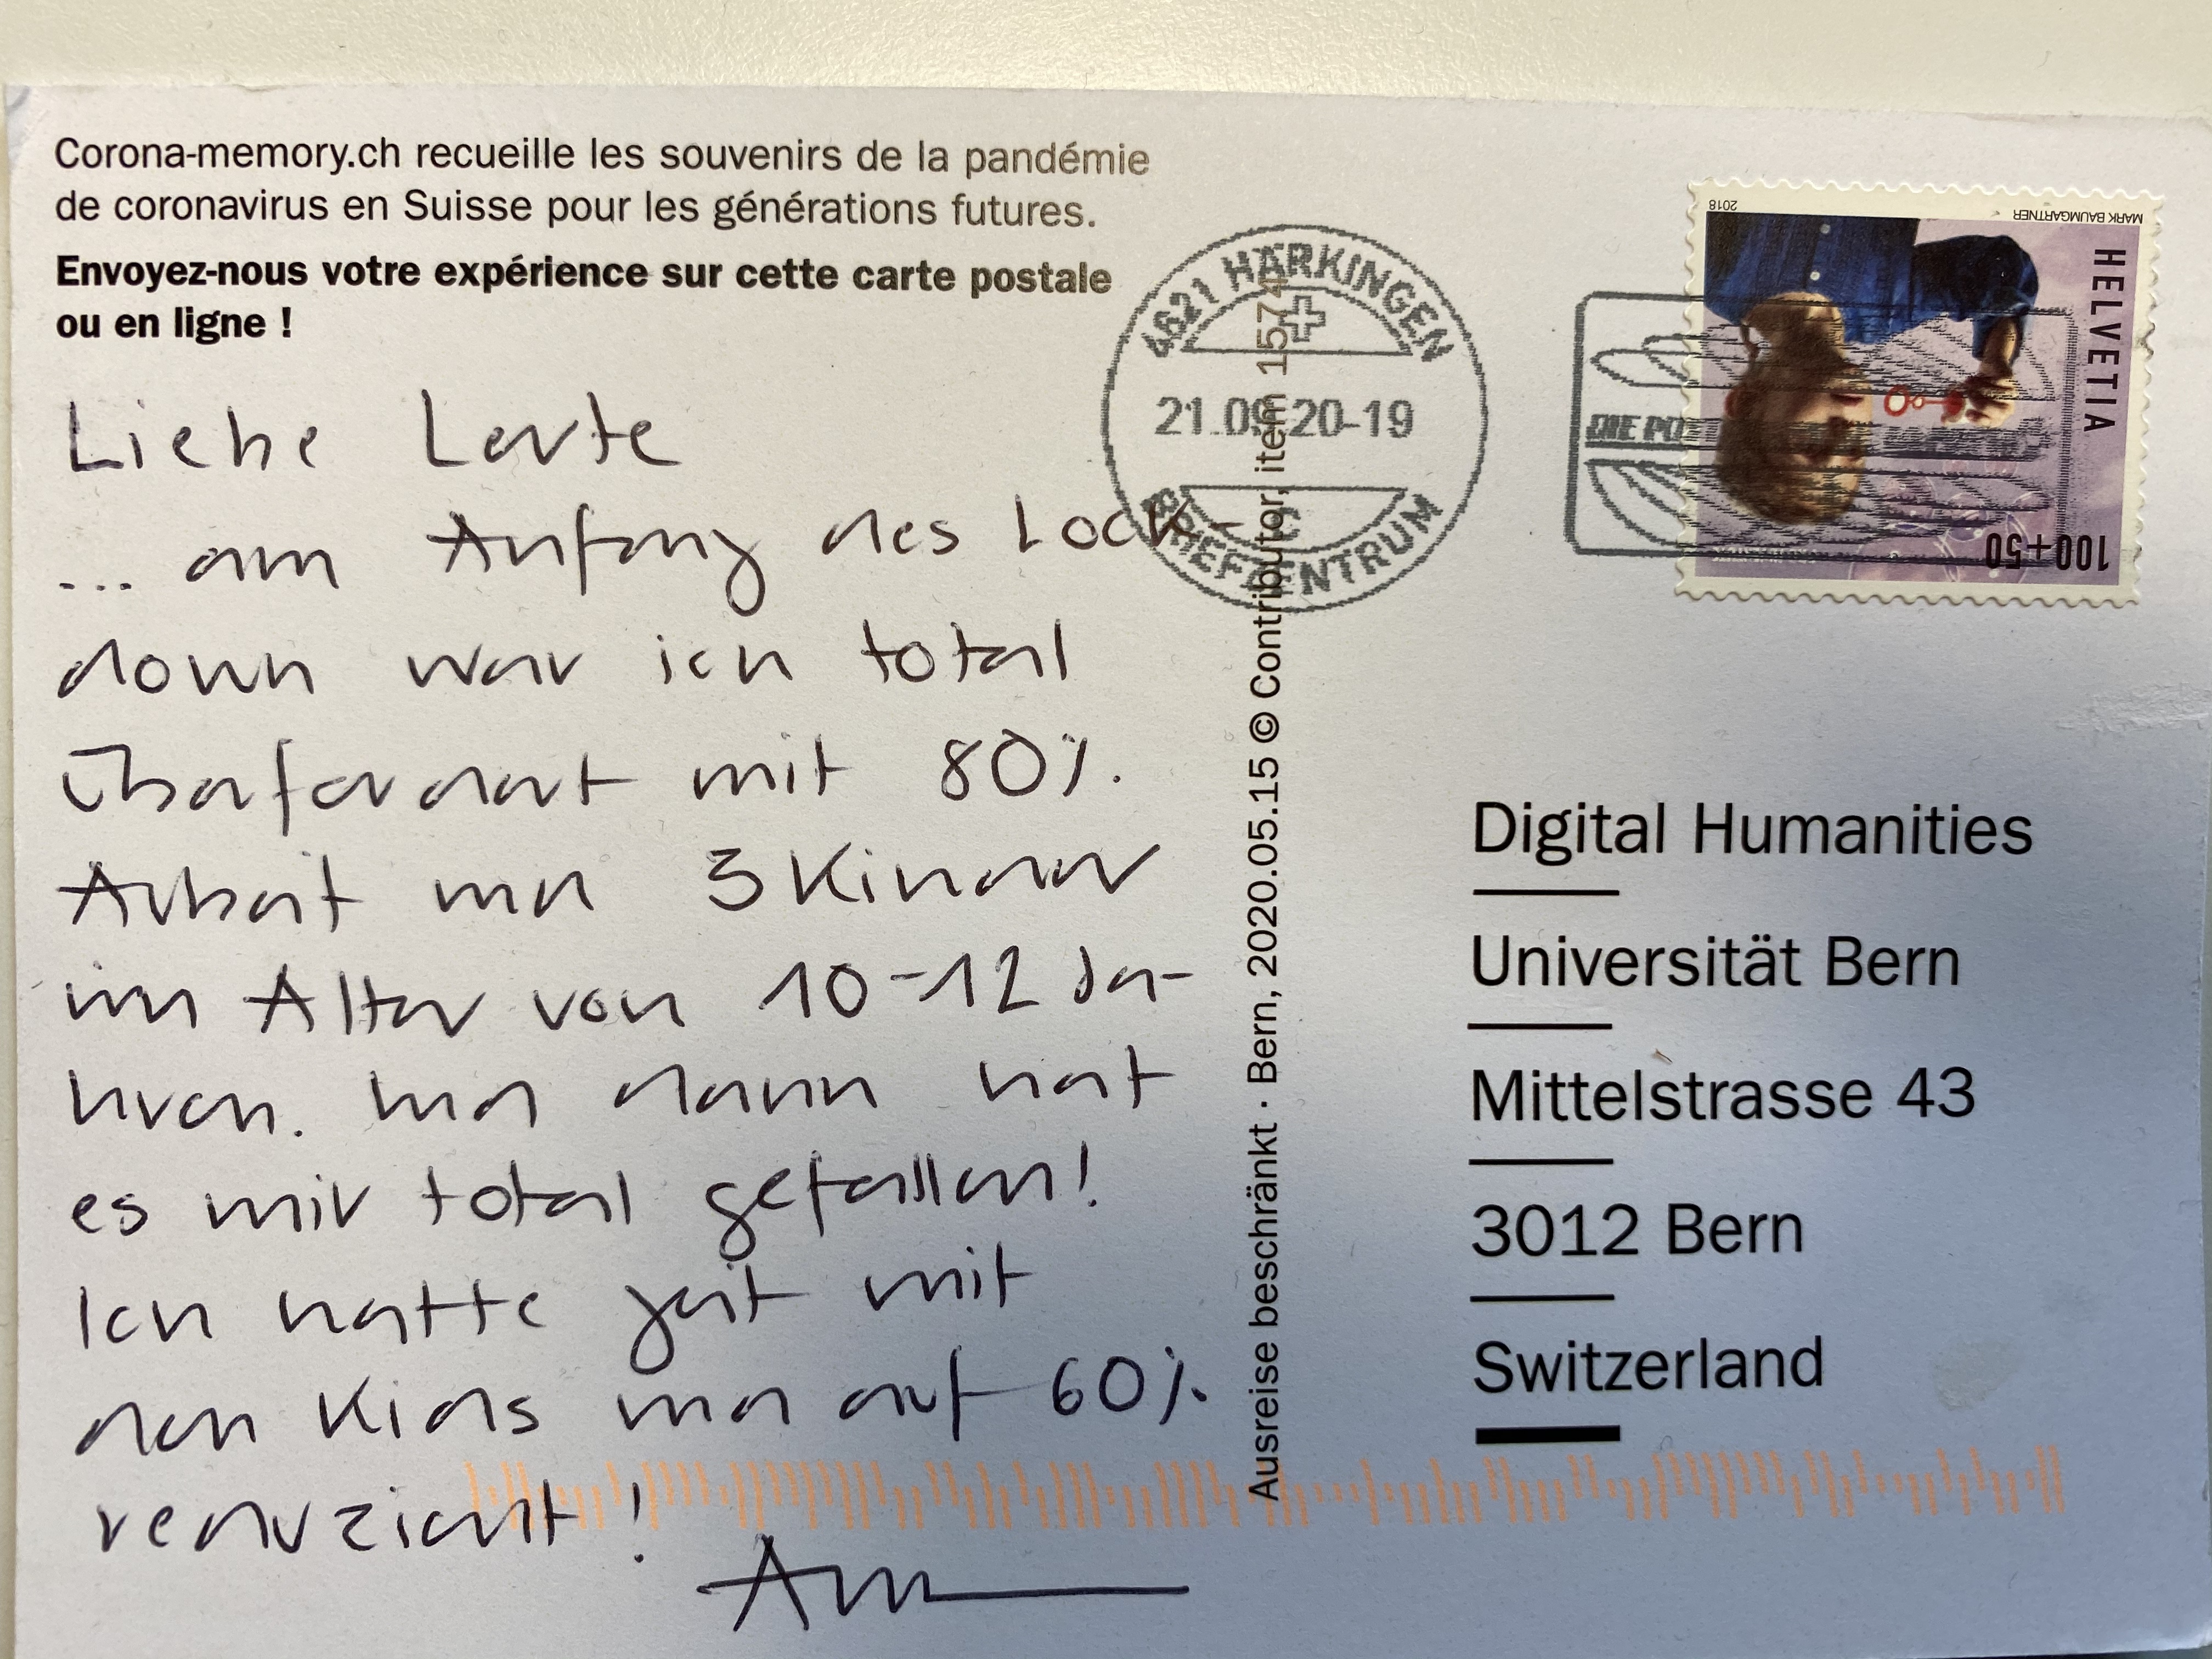 Corona-memory.ch recueille les souvenirs de la pandémie
de coronavirus en Suisse pour les générations futures.
Envoyez-nous votre expérience sur cette carte postale
ou en ligne !
Liebe Leute
... am Anfang des Lock-
down war ich total
überfordert mit 80%
Arbeit und 3 Kinder
im Alter von 10-12 Ja-
hren. Und dann hat
es mir total gefallen!
Ich hatte Zeit mit
den Kids und auf 60%
reduziert!
4621 HÄRKINGEN
21.09.20-19
BRIEFZENTRUM
Ausreise beschränkt · Bern, 2020.05.15 © Contributor, item 1574
2018
MARK BAUMGARTNER
HELVETIA
100+50
DIE PO
Digital Humanities
Universität Bern
Mittelstrasse 43
3012 Bern
Switzerland